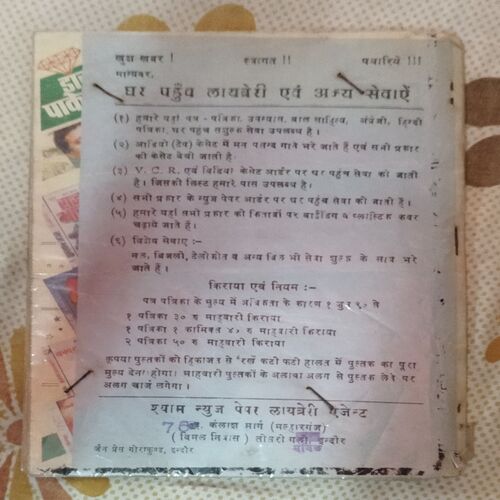 खुश खबर ! स्वागत !! पधारिये !!!
मान्यवर,
घर पहुँच लायब्रेरी एवं अन्य सेवाऐं
(१) हमारे यहां पत्र - पत्रिका, उपन्यास, बाल साहित्य, अंग्रेजी, हिन्दी
पत्रिका, घर पहुंच सशुल्क सेवा उपलब्ध है ।
(२) आडियो (टेप) केसेट में मन पसन्द गाने भरे जाते हैं एवं सभी प्रकार
की केसेट बेची जाती है
(३) V. C. R. एवं विडियो केसेट आर्डर पर घर पहुंच सेवा की जाती
है । जिसकी लिस्ट हमारे पास उपलब्ध है ।
(४) सभी प्रकार के न्यूज पेपर आर्डर पर घर पहुंच सेवा की जाती है ।
(५) हमारे यहां सभी प्रकार की किताबों पर बाइंडिंग व प्लास्टिक कवर
चढ़ाये जाते हैं ।
(६) विशेष सेवाएं :-
नल, बिजली, टेलीफोन व अन्य बिल भी सेवा शुल्क के साथ भरे
जाते हैं ।
किराया एवं नियम :-
पत्र पत्रिका के मुल्य में अधिकता के कारण १ जून ९० से
१ पत्रिका ३० रु माहवारी किराया
१ पत्रिका १ कामिक्स ४० रु माहवारी किराया
२ पत्रिका ५० रु माहवारी किराया
कृपया पुस्तकों को हिफाजत से रखें फटी फटी हालत में पुस्तक का पूरा
मुल्य देना होगा । माहवारी पुस्तकों के अलावा अलग से पुस्तक लेने पर
अलग चार्ज लगेगा ।
श्याम न्यूज पेपर लायब्रेरी एजेन्ट
76 कैलाश मार्ग (मल्हारगंज)
(विमल निवास) गली, इन्दौर
जैन प्रेस गोराकुण्ड, इन्दौर